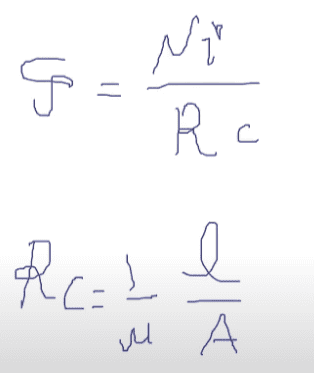 φ = Ni / Rc
Rc = 1/μ l/A